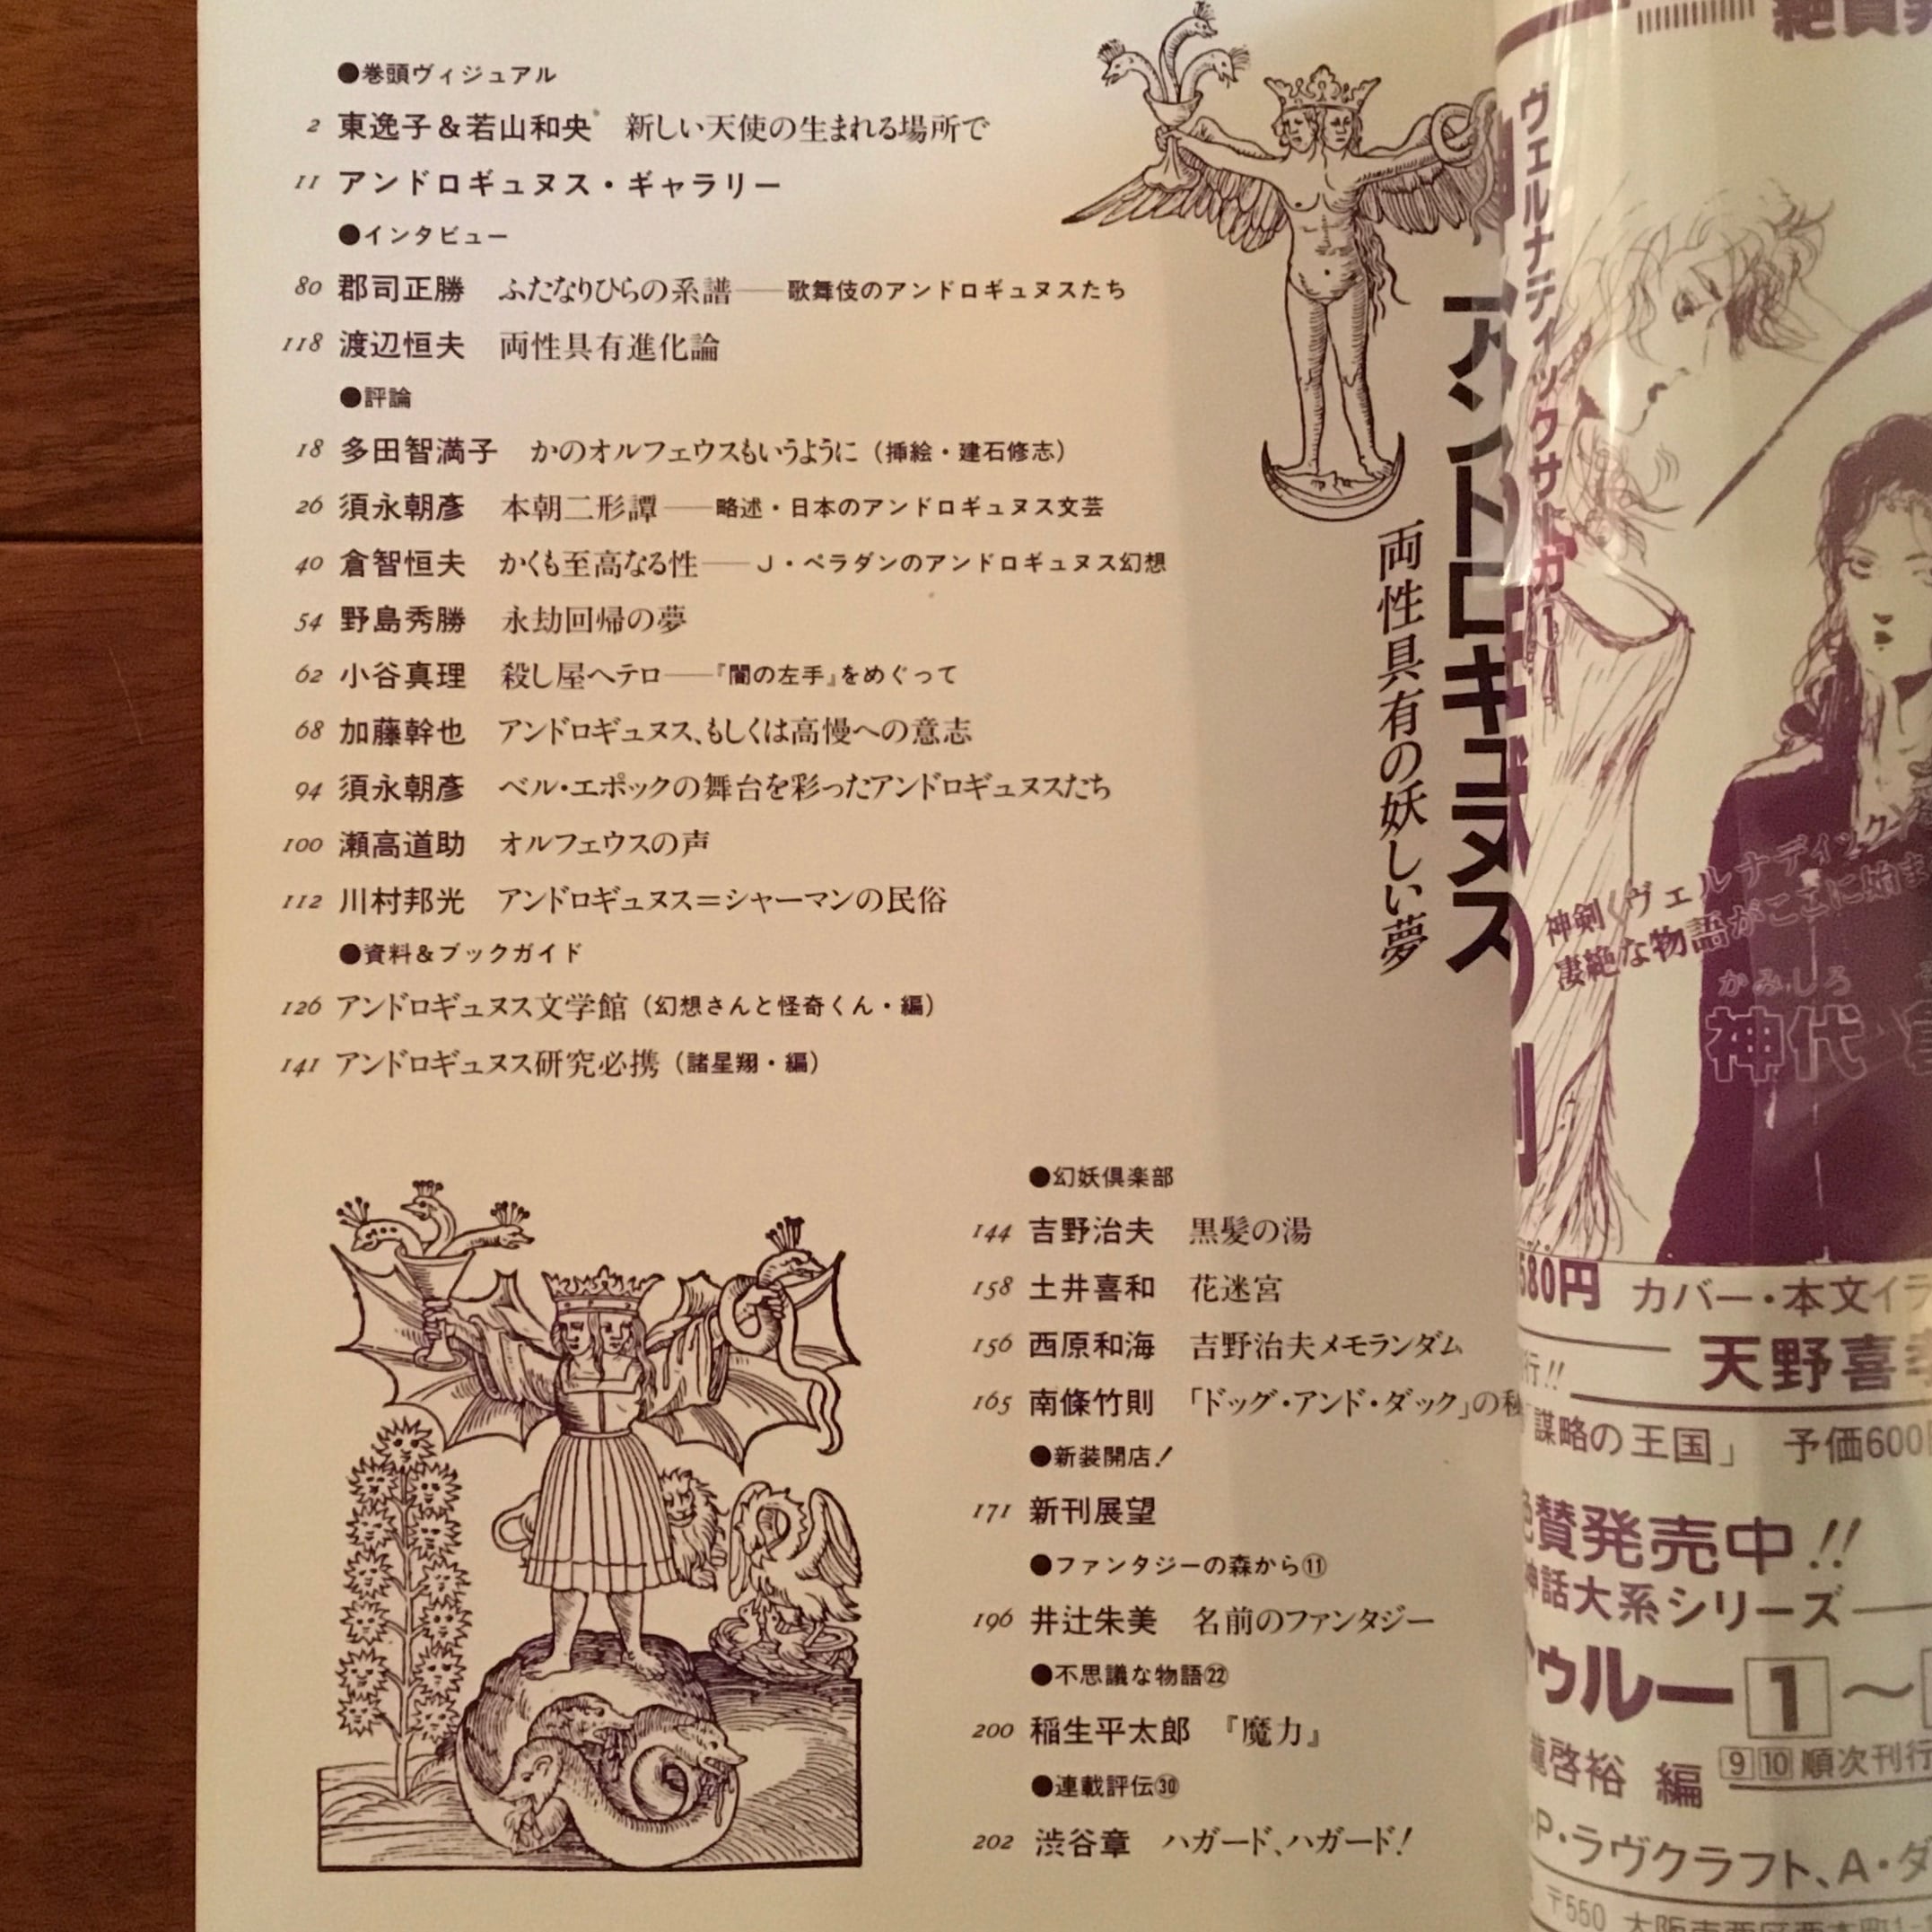 アンドロギュヌス
両性具有の妖しい夢
●巻頭ヴィジュアル
2 東逸子&若山和央 新しい天使の生まれる場所で
11 アンドロギュヌス・ギャラリー
●インタビュー
80 郡司正勝 ふたなりひらの系譜――歌舞伎のアンドロギュヌスたち
118 渡辺恒夫 両性具有進化論
●評論
18 多田智満子 かのオルフェウスもいうように(挿絵・建石修志)
26 須永朝彥 本朝二形譚――略述・日本のアンドロギュヌス文芸
40 倉智恒夫 かくも至高なる性――J・ペラダンのアンドロギュヌス幻想
54 野島秀勝 永劫回帰の夢
62 小谷真理 殺し屋ヘテロ――『闇の左手』をめぐって
68 加藤幹也 アンドロギュヌス、もしくは高慢への意志
94 須永朝彥 ベル・エポックの舞台を彩ったアンドロギュヌスたち
100 瀬高道助 オルフェウスの声
112 川村邦光 アンドロギュヌス=シャーマンの民俗
●資料&ブックガイド
126 アンドロギュヌス文学館(幻想さんと怪奇くん・編)
141 アンドロギュヌス研究必携(諸星翔・編)
●幻妖倶楽部
144 吉野治夫 黒髪の湯
158 土井喜和 花迷宮
156 西原和海 吉野治夫メモランダム
165 南條竹則 「ドッグ・アンド・ダック」の秘
●新装開店!
171 新刊展望
●ファンタジーの森から⑪
196 井辻朱美 名前のファンタジー
●不思議な物語㉒
200 稲生平太郎 『魔力』
●連載評伝㉚
202 渋谷章 ハガード、ハガード!
ヴェルナディックサーガ1
の剣
神剣〈ヴェルナディック
凄絶な物語がここに始ま
かみしろ
神代
580円 カバー・本文イラ
天野喜孝
行!!
謀略の王国」 予価600
絶賛発売中!!
神話大系シリーズ
ゥルー 1 ～
啓裕 編 9 10 順次刊行
P・ラヴクラフト、A・ダ
〒550